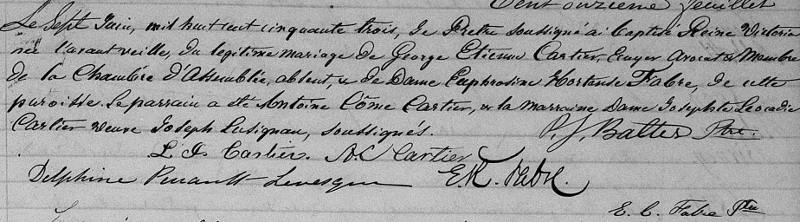 Cent onzième feuillet
Le Sept Juin, mil huit cent cinquante trois, Je Prêtre soussigné ai baptisé Reine Victoria
née l'avant veille, du légitime mariage de George Etienne Cartier, Ecuyer Avocat & Membre
de la Chambre d'Assemblée, absent, & de Dame Euphrosine Hortense Fabre, de cette
paroisse. Le parrain a été Antoine Côme Cartier, & la marraine Dame Josephte Leocadie
Cartier veuve Joseph Lusignan, soussignés. P. J. Ptre.
L J Cartier. A. C Cartier
Delphine Levesque E. R. Fabre.
E. C. Fabre Ptre